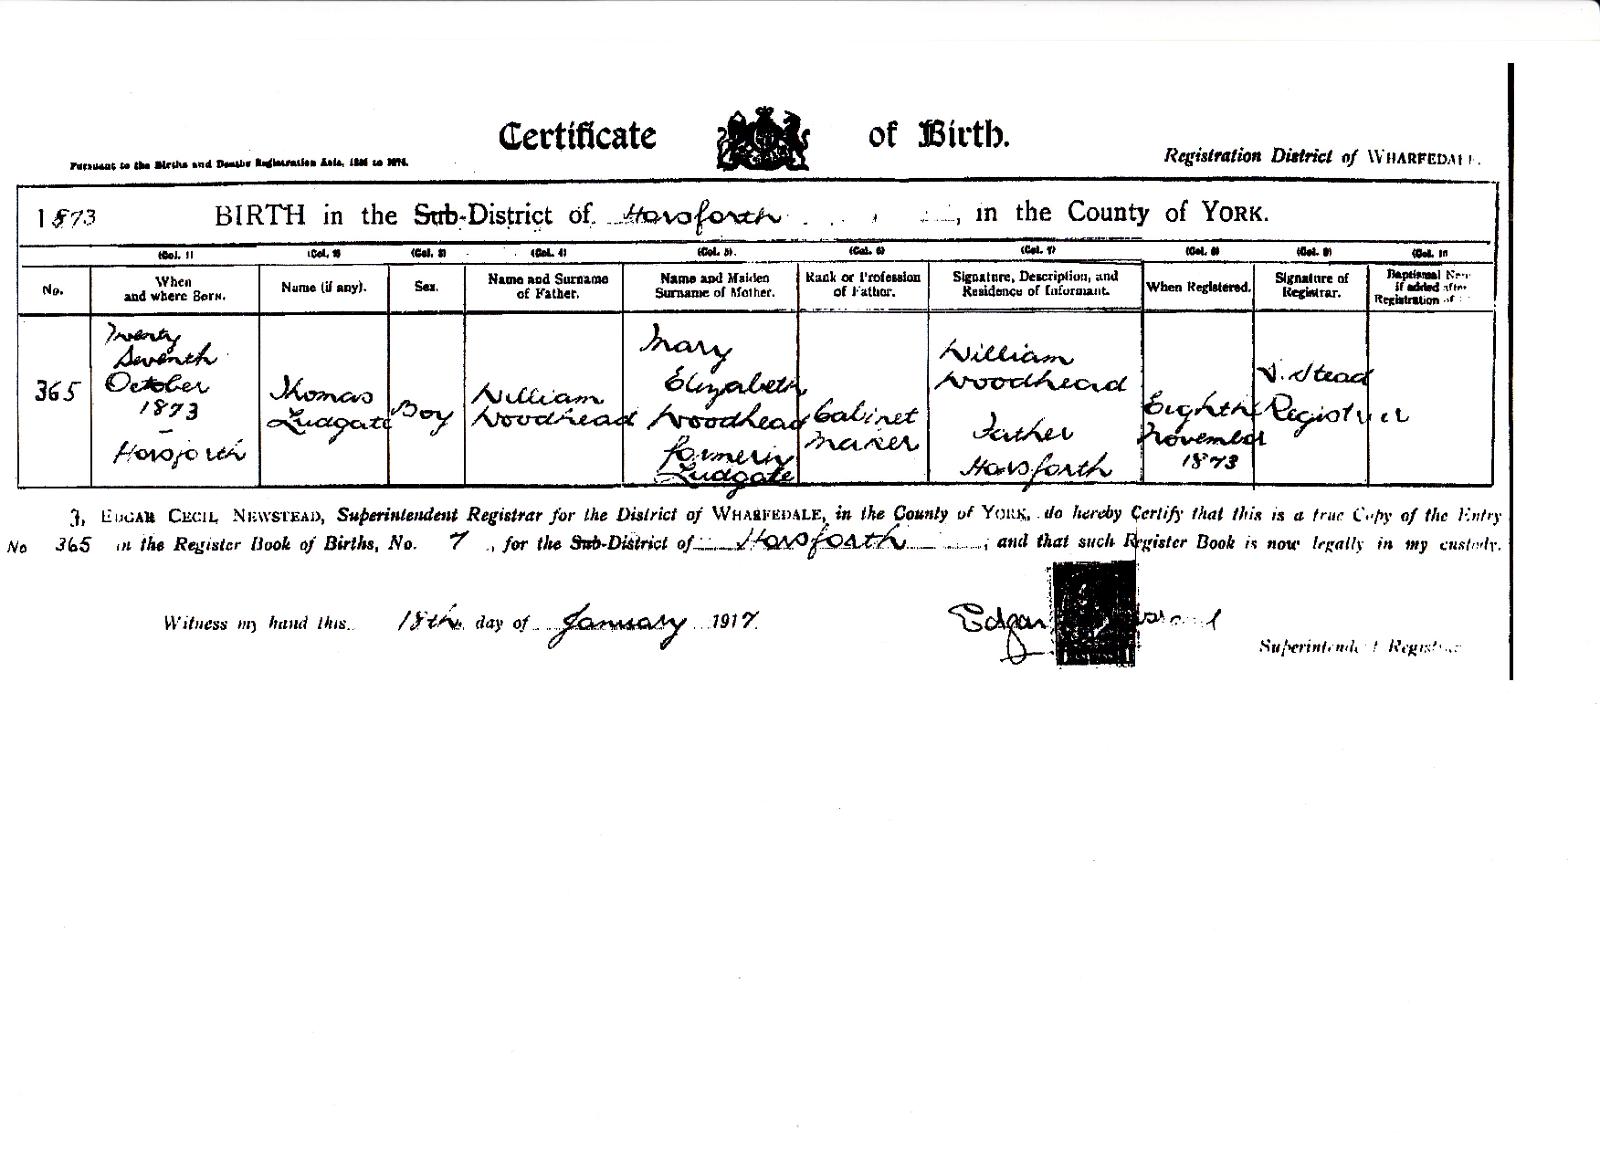 Certificate of Birth.
Pursuant to the Births and Deaths Registration Acts, 1836 to 1874.
Registration District of WHARFEDALE.
1873 BIRTH in the Sub-District of Horsforth, in the County of YORK.
(Col. 1) (Col. 2) (Col. 3) (Col. 4) (Col. 5) (Col. 6) (Col. 7) (Col. 8) (Col. 9) (Col. 10
No.
When
and where Born.
Name (if any).
Sex.
Name and Surname
of Father.
Name and Maiden
Surname of Mother.
Rank or Profession
of Father.
Signature, Description, and
Residence of Informant.
When Registered.
Signature of
Registrar.
Baptismal
if added after
Registration of
365
Twenty
Seventh
October
1873
Horsforth
Thomas
Ludgate
Boy
William
Woodhead
Mary
Elizabeth
Woodhead
formerly
Ludgate
Cabinet
Maker
William
Woodhead
Father
Horsforth
Eighth
November
1873
Stead
Registrar
I, EDGAR CECIL NEWSTEAD, Superintendent Registrar for the District of WHARFEDALE, in the County of YORK, do hereby Certify that this is a true Copy of the Entry
No 365 in the Register Book of Births, No. 7, for the Sub-District of Horsforth, and that such Register Book is now legally in my custody.
Witness my hand this 18th day of January 1917.
Edgar
Superintendent Registrar